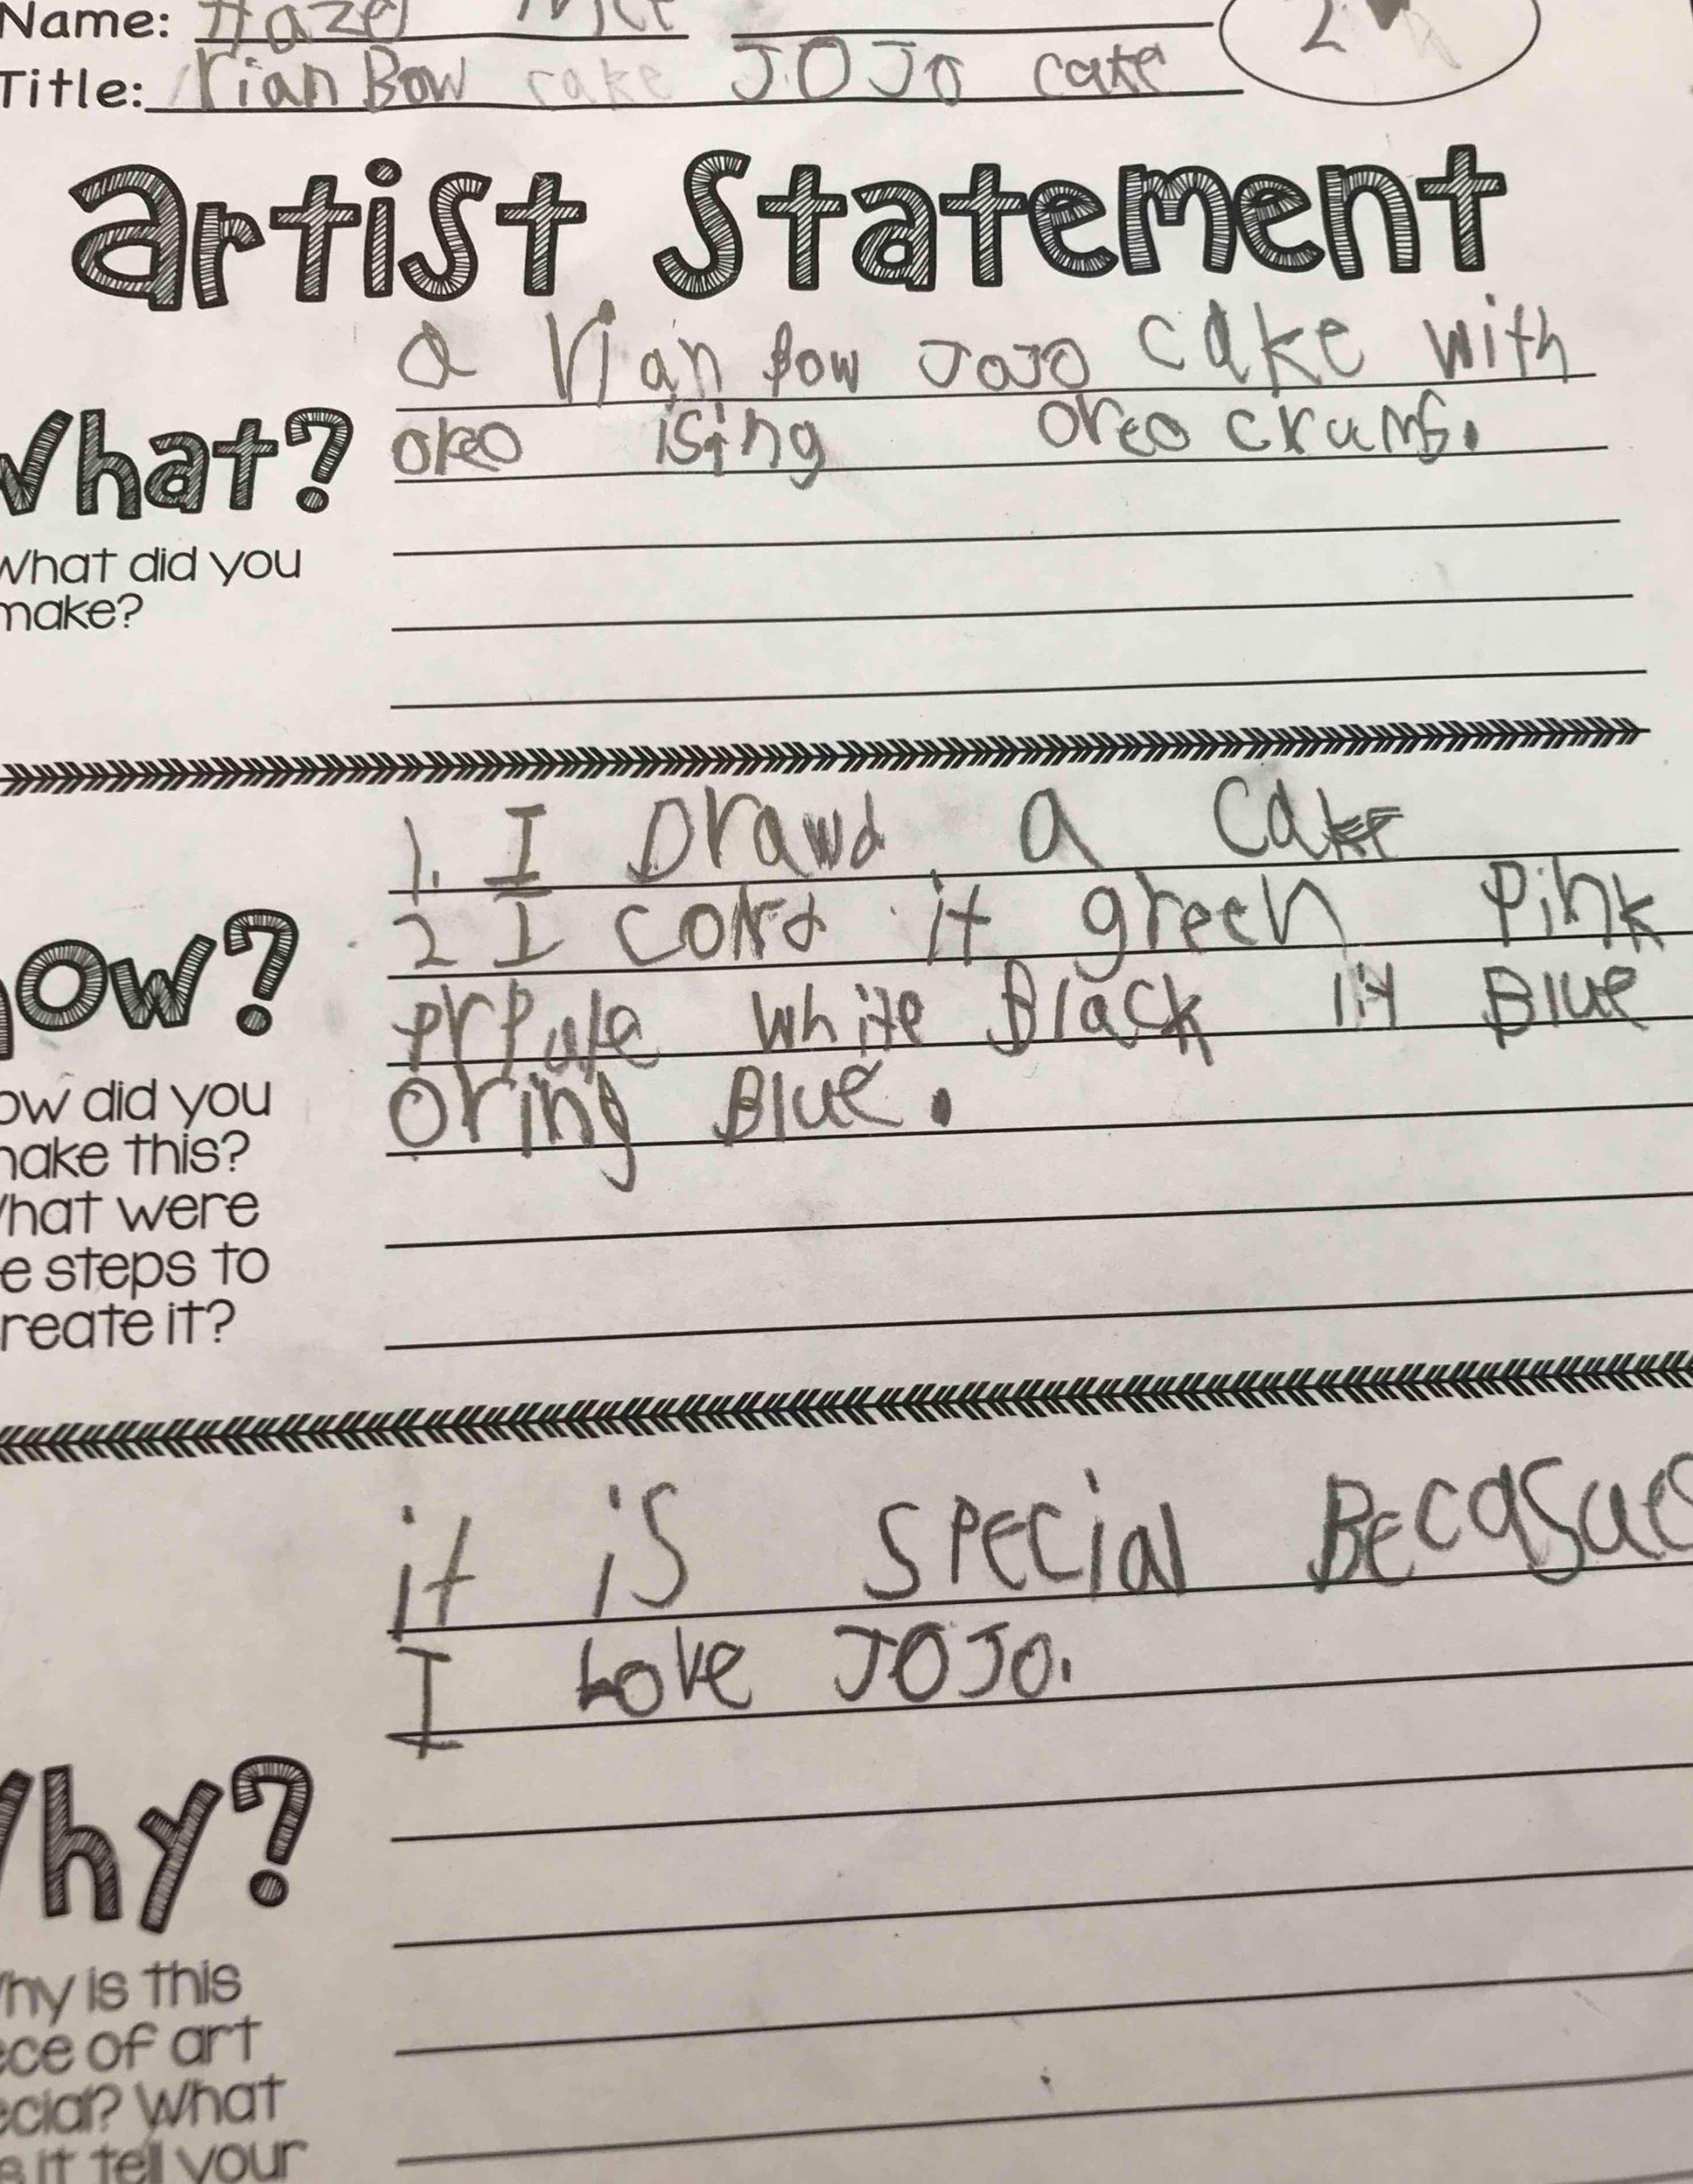 Name: Haze
Title: rian Bow cake JOJO cake
2
artist Statement
a rian bow JOJO cake with
What?
oreo ising oreo crums.
What did you
make?
1. I Drawd a cake
2 I colrd it green Pink
How?
prpule white Black lit Blue
oring Blue.
ow did you
make this?
What were
e steps to
reate it?
it is special Becasue
I Love JOJO.
Why?
Why is this
ece of art
ecial? What
s it tell your